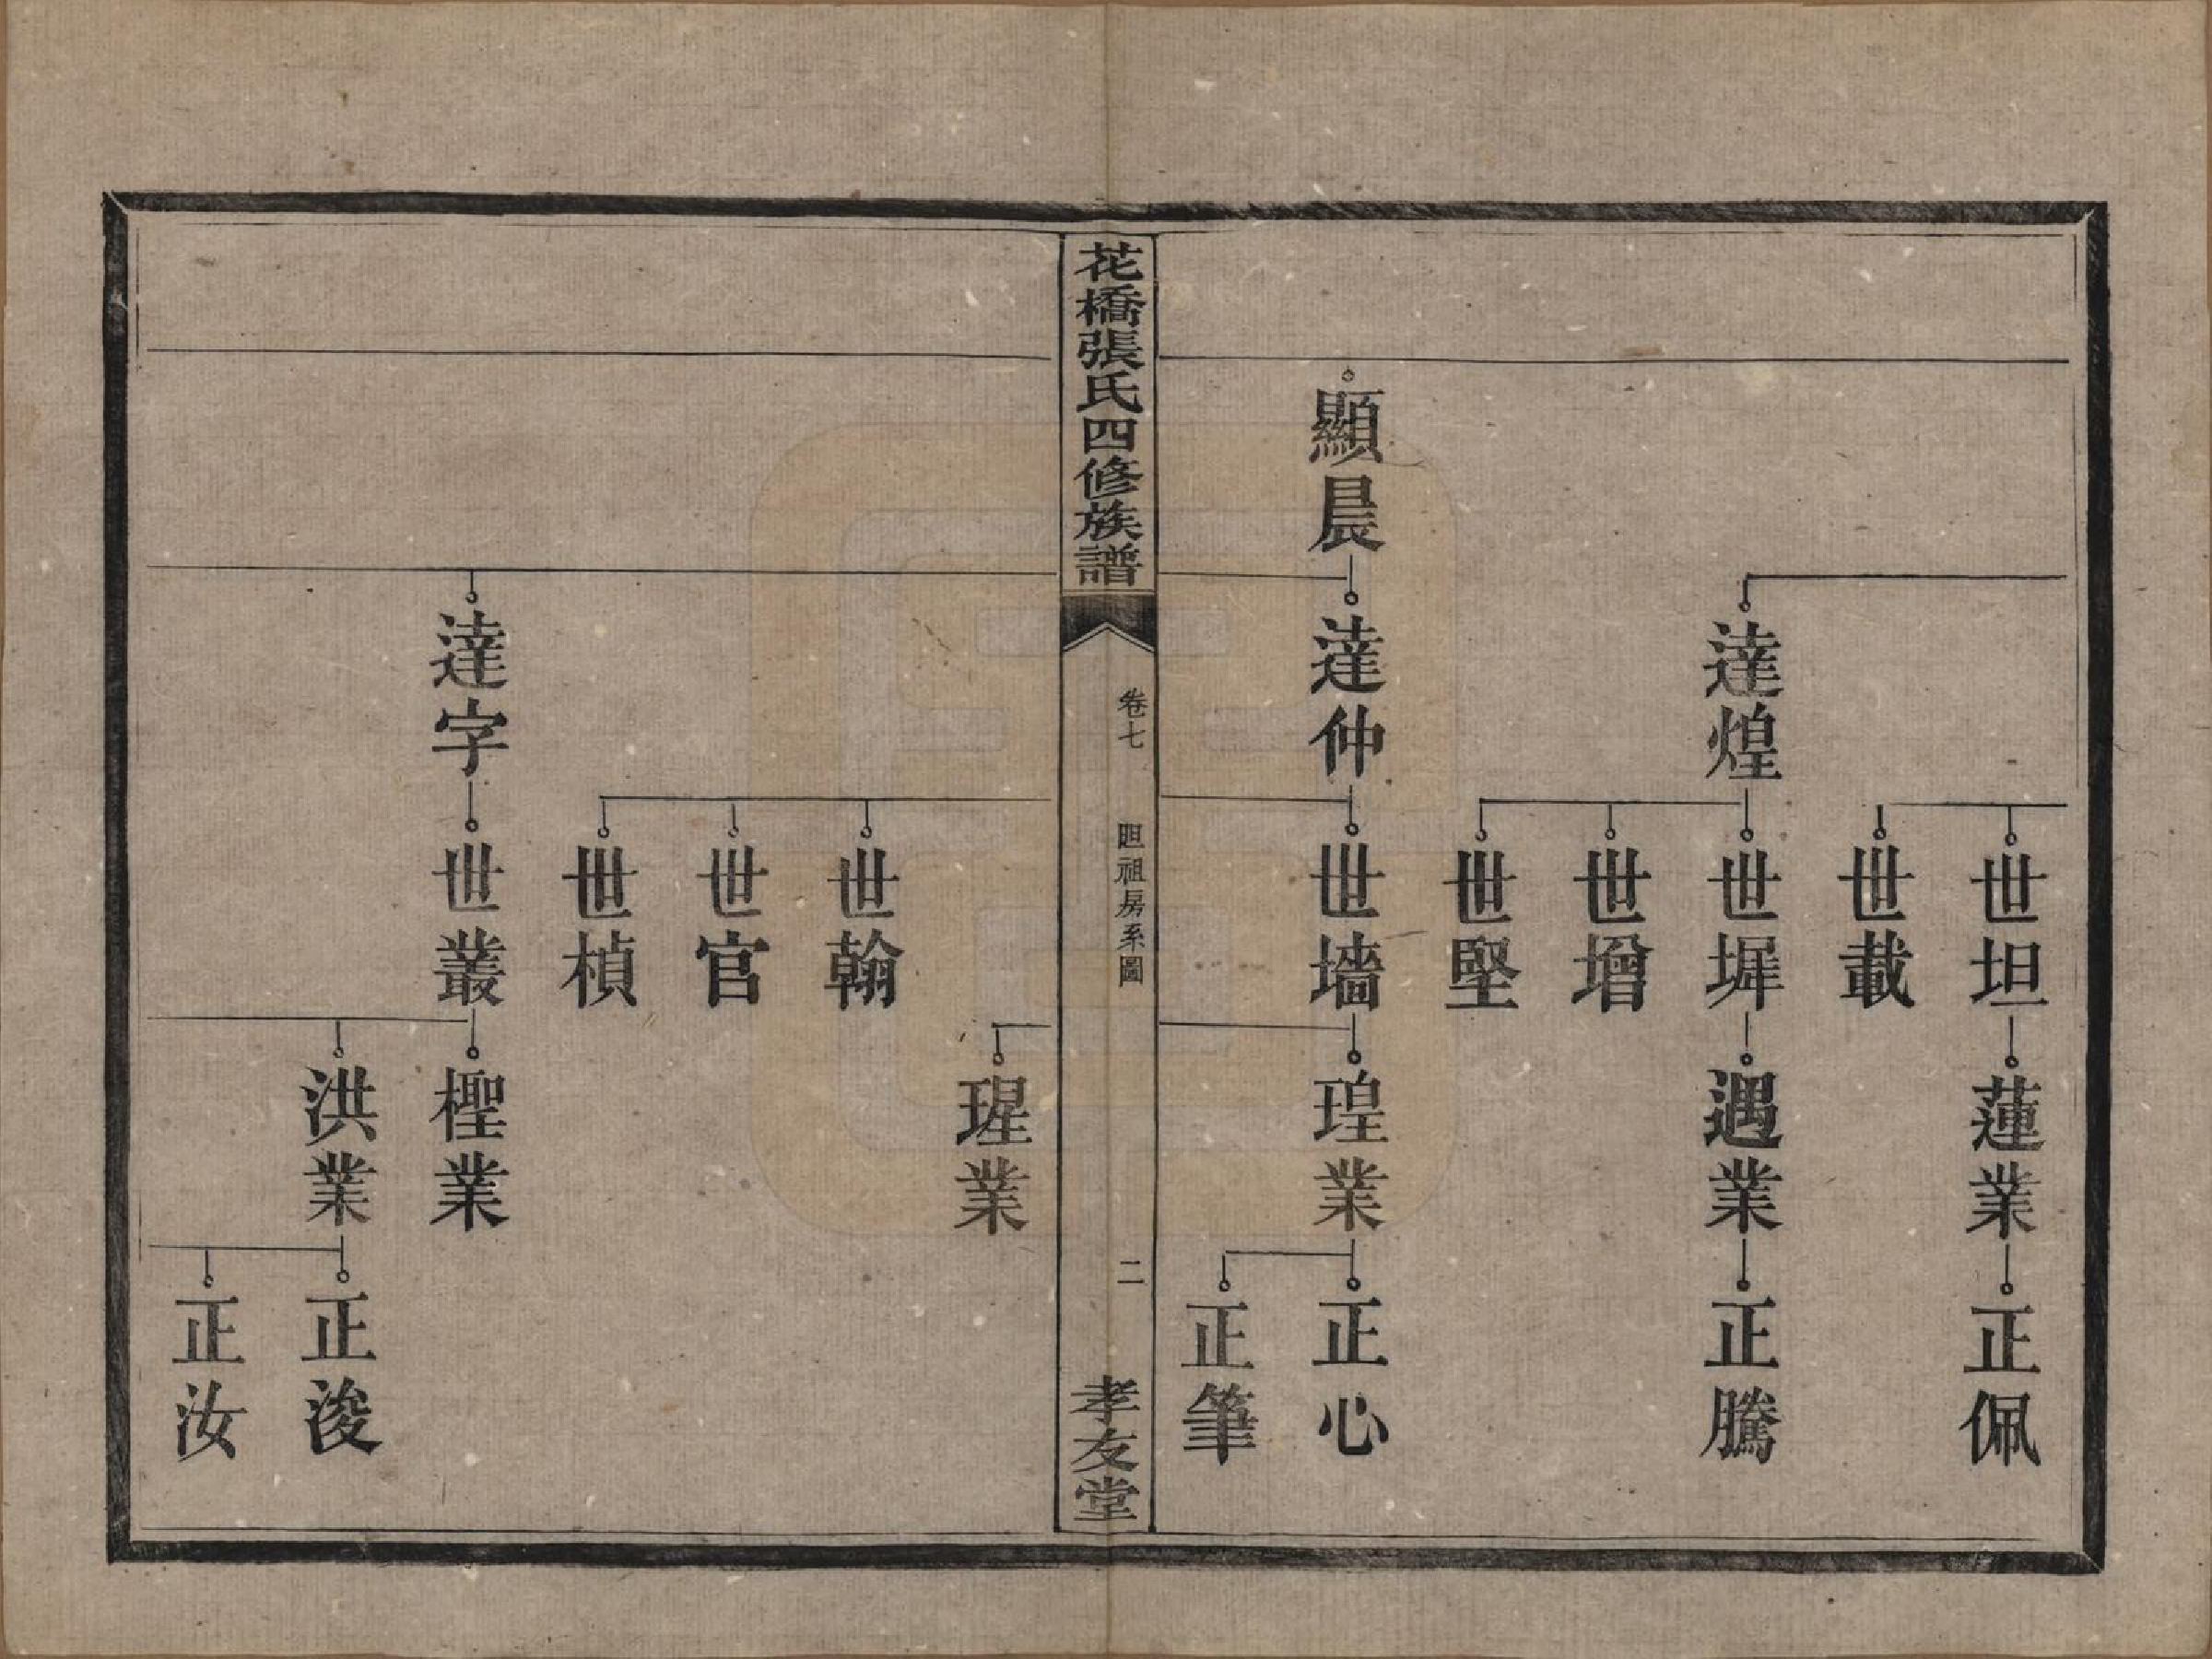 世坦
蓮業
正佩
世載
達煌
世墀
遇業
正騰
世增
世堅
顯晨
達仲
世墻
瑝業
正心
正筆
花橋張氏四修族譜
卷七
祖房系圖
二
孝友堂
瑆業
世翰
世官
世楨
達字
世叢
檉業
洪業
正浚
正汝